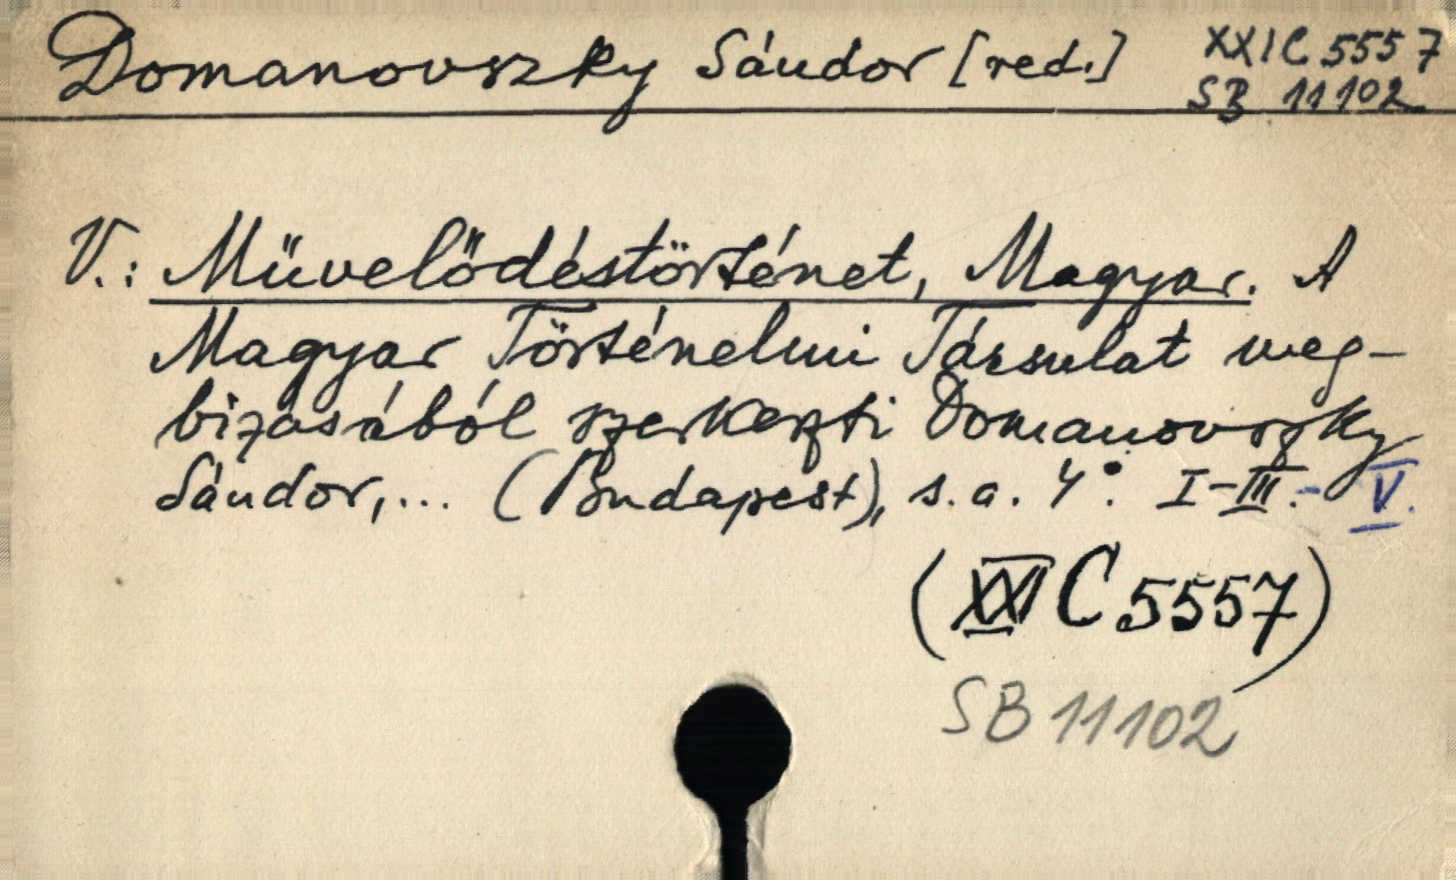 Domanovszky Sándor [red.]
XXI C 5557
SB 11102
V.: Müvelődéstörténet, Magyar. A
Magyar Történelmi Társulat meg-
bizásából szerkeszti Domanovszky
Sándor,... (Budapest), s.a. 4°. I-III.- V.
(XXI C 5557)
SB 11102